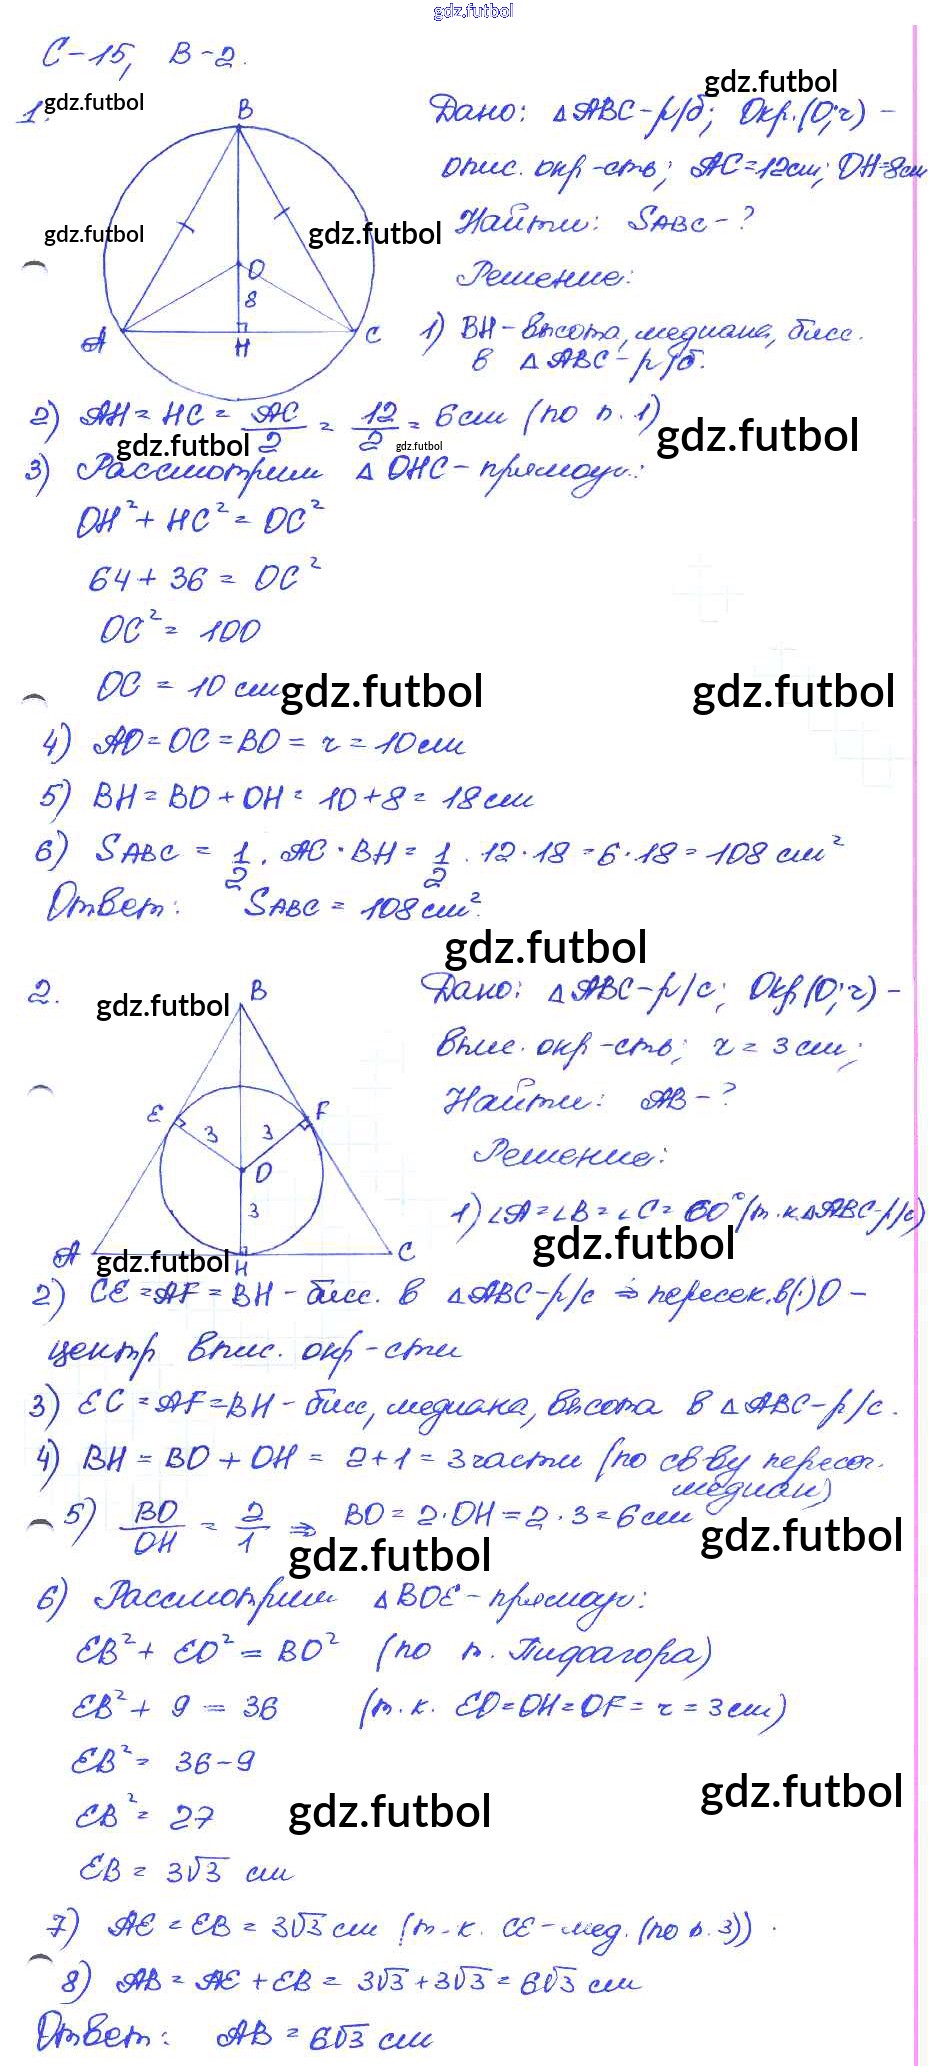 gdz.futbol
С-15, В-2.
1. gdz.futbol
gdz.futbol
B
Дано: △ABC-р/б; Окр.(O;r) -
опис. окр-сть; AC=12см; OH=8см
gdz.futbol
gdz.futbol
Найти: SABC-?
Решение:
O
8
A
H
C
1) BH-высота, медиана, бисс.
в △ABC-р/б.
2) AH = HC = AC/2 = 12/2 = 6см (по п.1)
gdz.futbol
gdz.futbol
gdz.futbol
3) Рассмотрим △OHC-прямоуг.:
OH² + HC² = OC²
64 + 36 = OC²
OC² = 100
OC = 10 см
gdz.futbol
gdz.futbol
4) AO = OC = BO = r = 10см
5) BH = BO + OH = 10 + 8 = 18см
6) SABC = 1/2 · AC · BH = 1/2 · 12 · 18 = 6 · 18 = 108 см²
Ответ: SABC = 108см².
gdz.futbol
2. gdz.futbol
B
Дано: △ABC-р/с; Окр(O;r) -
впис. окр-сть; r = 3см;
E
F
3
3
Найти: AB-?
O
3
Решение:
A
H
C
1) ∠A = ∠B = ∠C = 60° (т.к. △ABC-р/с)
gdz.futbol
gdz.futbol
2) CE = AF = BH - бисс. в △ABC-р/с ⇒ пересек. в (·) O -
центр впис. окр-сти
3) EC = AF = BH - бисс, медиана, высота в △ABC-р/с.
4) BH = BO + OH = 2 + 1 = 3части (по св-ву пересеч.
медиан)
5) BO/OH = 2/1 ⇒ BO = 2·OH = 2·3 = 6см
gdz.futbol
gdz.futbol
6) Рассмотрим △BOE-прямоуг:
EB² + EO² = BO² (по т. Пифагора)
EB² + 9 = 36 (т.к. EO = OH = OF = r = 3см)
EB² = 36-9
gdz.futbol
EB² = 27
gdz.futbol
EB = 3√3 см
7) AE = EB = 3√3см (т-к. CE-мед. (по п.3)).
8) AB = AE + EB = 3√3 + 3√3 = 6√3 см
Ответ: AB = 6√3 см